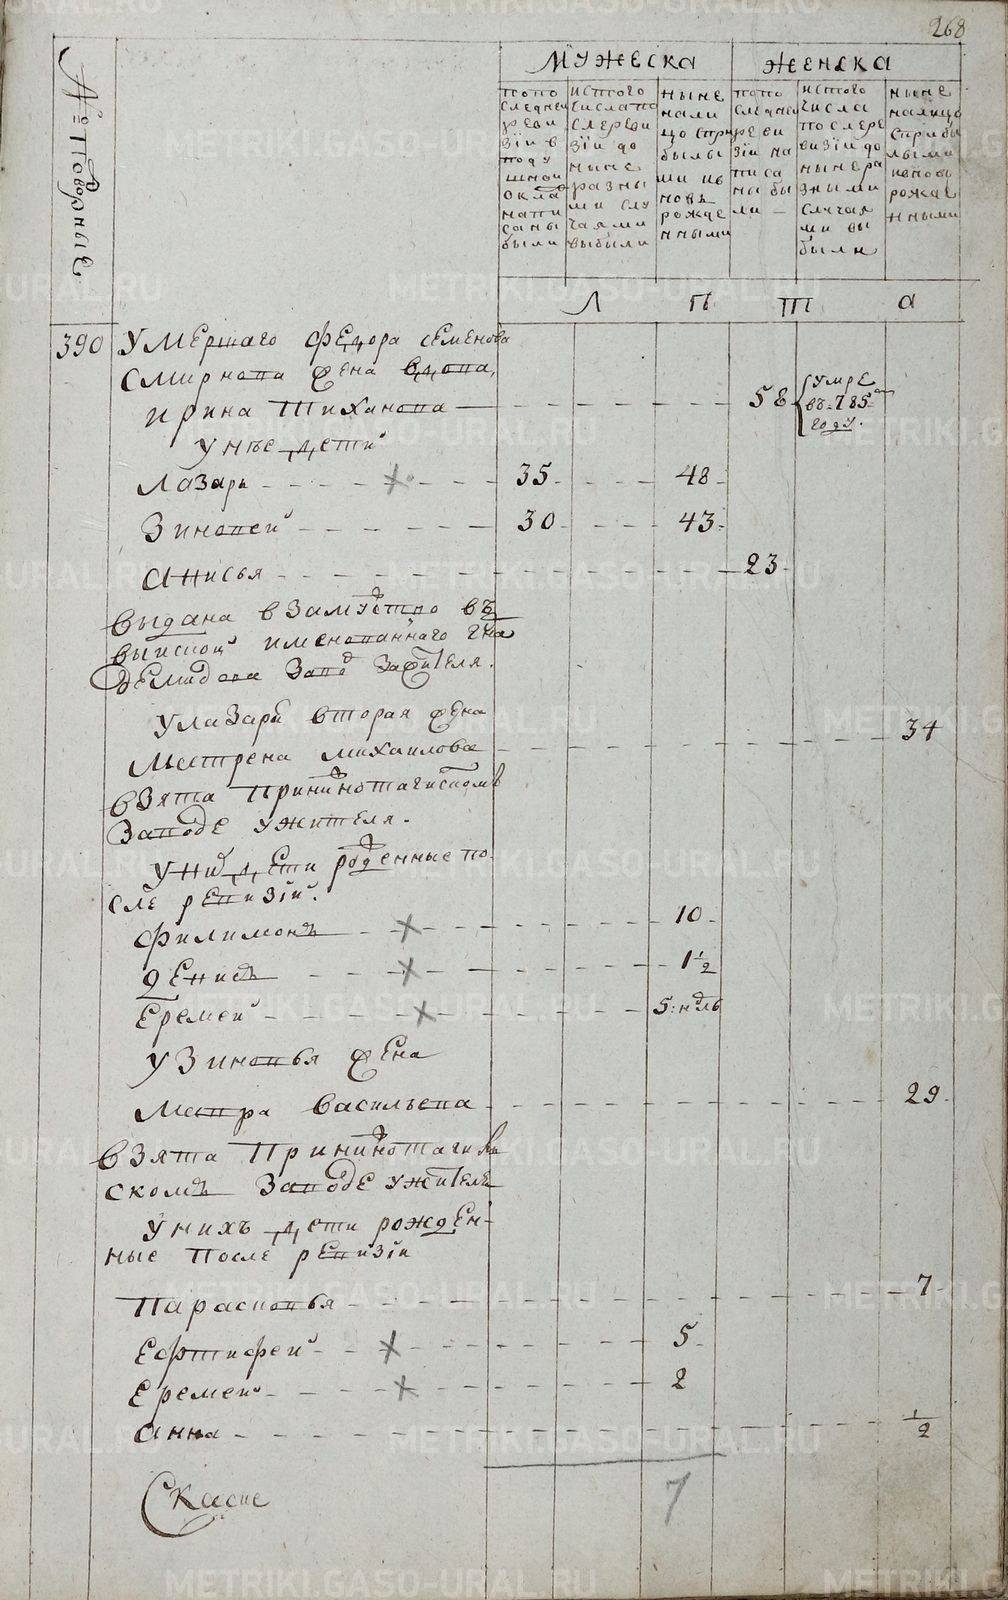 268
№ подворные
МУЖЕСКА
ЖЕНСКА
по последней ревизiи в подушной оклад написаны были
ис того числа после ревизiи до ныне разными случаями выбыли
ныне на лицо с прибылыми и вновь рожденными
по последней ревизiи написаны были
ис того числа после ревизiи до ныне разными случаями выбыли
ныне на лицо с прибылыми и вновь рожденными
Л Ѣ Т А
390 Умершаго Федора Семенова
Смирнова жена вдова
Ирина Тиханова 58 умре въ 785 году.
У нее дети
Лазарь 35 48
Зиновей 30 43
Анисья 23
выдана в замужство въ
вышепоимянованнаго Г-на
Демидова завод за жителя.
У Лазаря вторая жена
Матрена Михаилова 34
взята при Нижнотагилском
заводе у жителя.
У них дети рожденные по-
сле ревизiи.
Филимонъ 10
Денисъ 1½
Еремей 5: ндль
У Зиновья жена
Марфа Васильева 29
взята при Нижнотагил-
скомъ заводе у жителя
У нихъ дети рожден-
ные после ревизiи
Парасковья 7
Ефтифей 5
Еремей 2
Анна ½
7